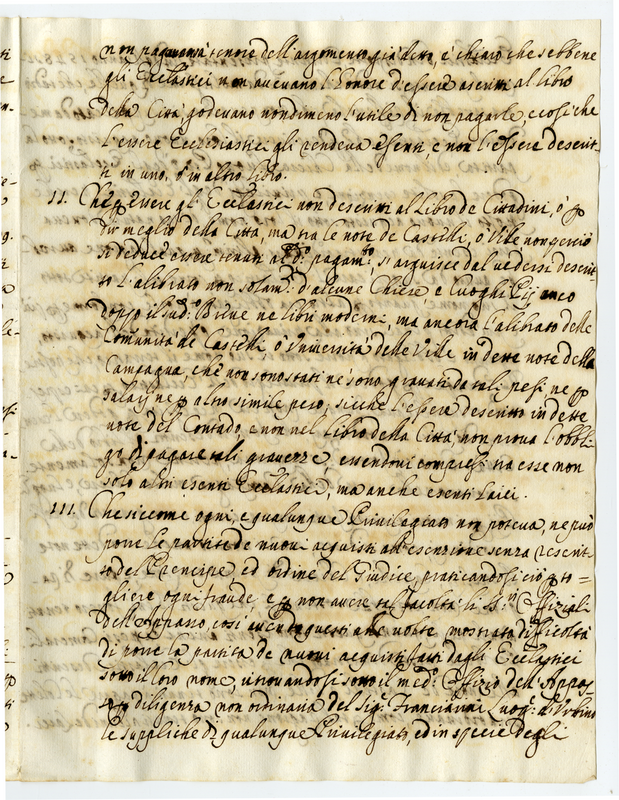 non pagavano à tenore dell'argomento già detto, è chiaro che sebbene
gli Ecclastici non avevano l'onore d'essere ascritti al libro
della Città, godevano nondimeno l'utile di non pagarle, e così che
l'essere Ecclesiastici gli rendeva esenti, e non l'essere descrit-
ti in uno, ò in altro libro.
II. Che p essere gl'Ecclastici non descritti al Libro de Cittadini, ò p
dir meglio della Città, ma tra le note de Castelli, ò Ville non perciò
si deduce essere tenuti al d.º pagam.to, si arguisce dal vedersi descrit-
to l'alibrato non solam: d'alcune Chiese, e Luoghi Pij anco
doppo il sud.º Breve ne libri moderni, ma ancora l'alibrato delle
Comunità de Castelli, ò Università delle Ville in dette note della
Campagna, che non sono stati nè sono gravati da tali pesi ne p
salarj ne p altro simile peso; sicche l'essere descritto in dette
note del Contado, e non nel libro della Città non prova l'obbli-
go di pagare tali gravezze, essendovi compresi tra esse non
solo altri esenti Ecclastici, ma anche esenti Laici.
III. Che siccome ogni, e qualunque Privilegiato non poteva, ne può
porre le partite de nuovi acquisti all'esenzione senza rescrit-
to del Prencipe, ed ordine del Giudice, praticandosi ciò p to=
gliere ogni fraude, e p non avere tal facoltà li SS.ri Offiziali
dell'Appasso, così avendo questi alle volte mostrato difficoltà
di porre la partita de nuovi acquisti fatti dagli Ecclastici
sotto il loro nome, ritrovandosi sotto il med.º Offizio dell'Appas-
so p diligenza non ordinaria del Sig.r Franciarini Luog: d'Urbino
le suppliche di qualunque Privilegiato, ed in specie degli